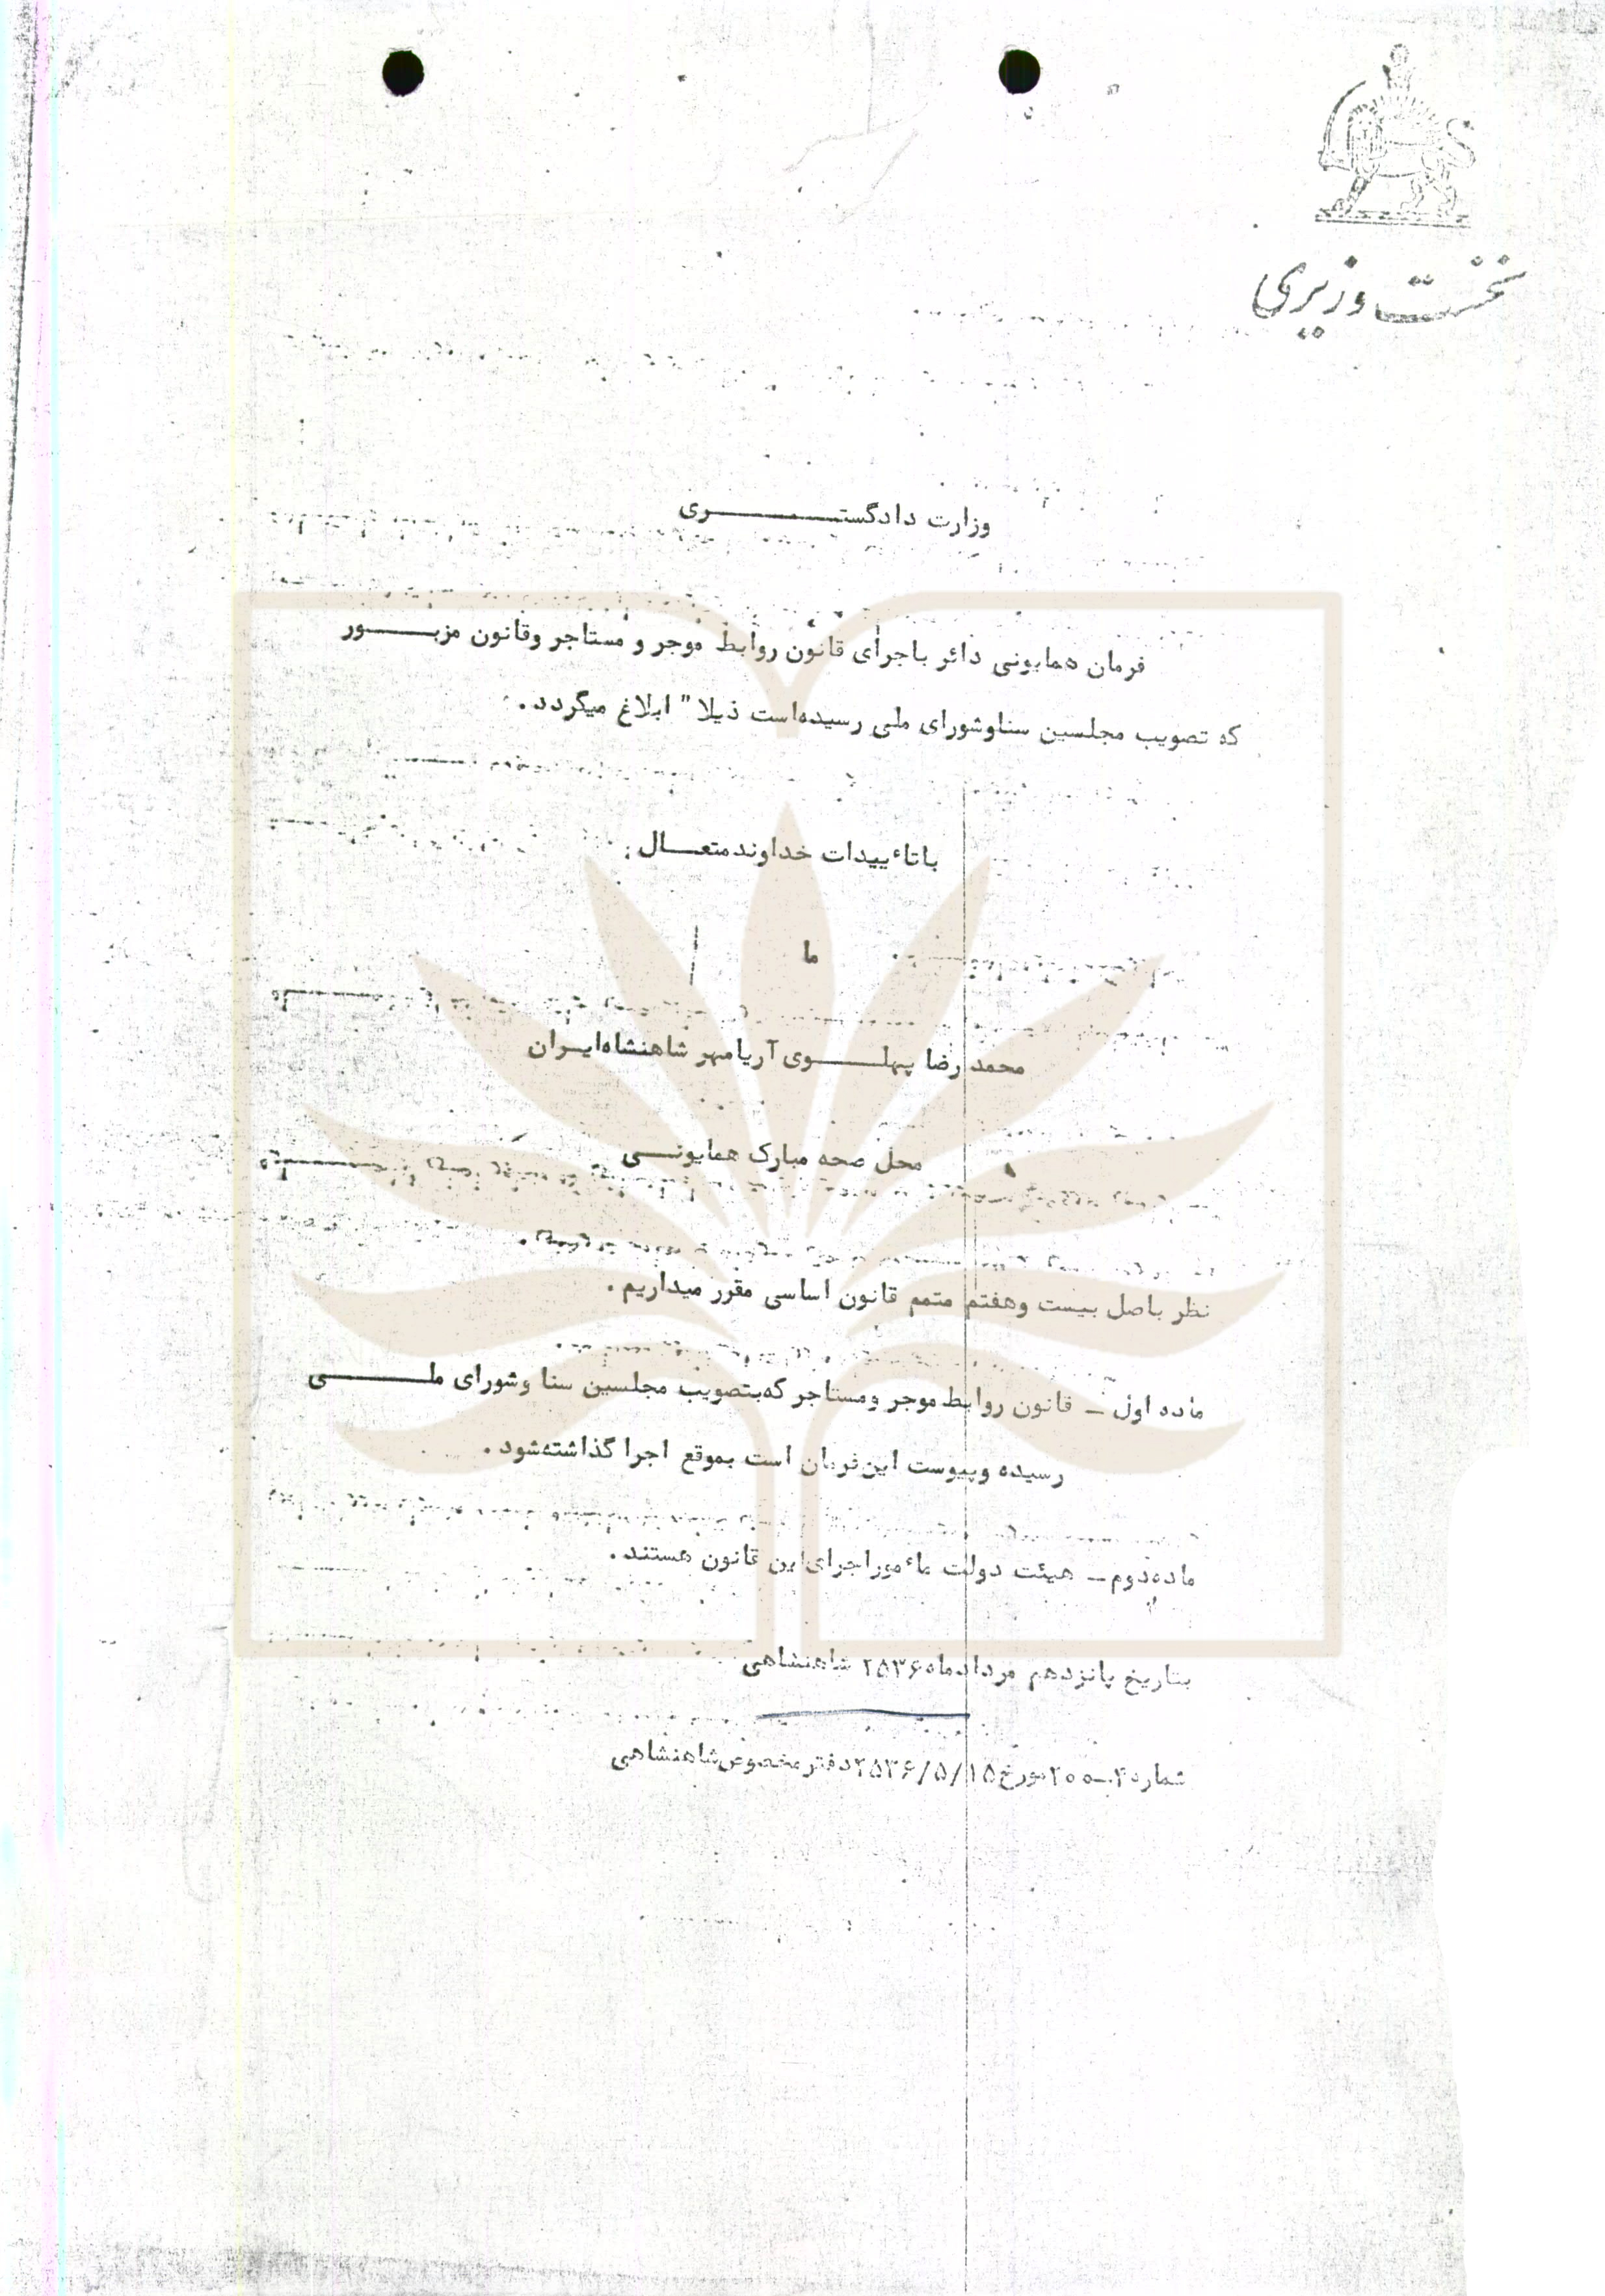 نخست وزیری
وزارت دادگستری
فرمان همایونی دائر باجرای قانون روابط موجر و مستاجر وقانون مزبور
که تصویب مجلسین سناوشورای ملی رسیده‌است ذیلا" ابلاغ میگردد .
باتاٴییدات خداوندمتعال
ما
محمد رضا پهلوی آریامهر شاهنشاه‌ایران
محل صحه مبارک همایونی
نظر باصل بیست وهفتم متمم قانون اساسی مقرر میداریم .
ماده اول ــ قانون روابط موجر ومستاجر که‌بتصویب مجلسین سنا وشورای ملی
رسیده وپیوست این‌فرمان است بموقع اجرا گذاشته‌شود .
ماده‌دوم ــ هیئت دولت ماٴموراجرای‌این قانون هستند .
بتاریخ پانزدهم مردادماه ۲۵۳۶ شاهنشاهی
شماره مورخ ۲۵۳۶/۵/۱۵ دفترمخصوص‌شاهنشاهی